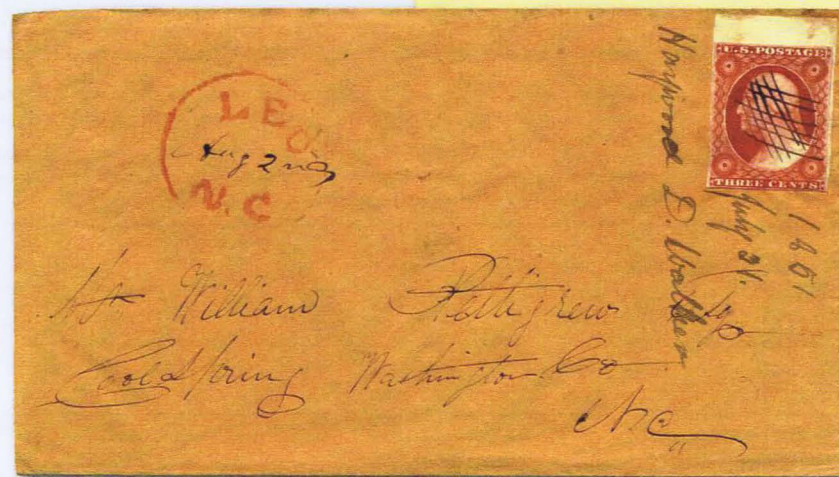 LEO
Aug 2nd
N.C
U.S. POSTAGE
THREE CENTS
Haywood D. Walker
July 28.
1851
William Pettigrew Esq
Cool Spring Washington Co
N.C.